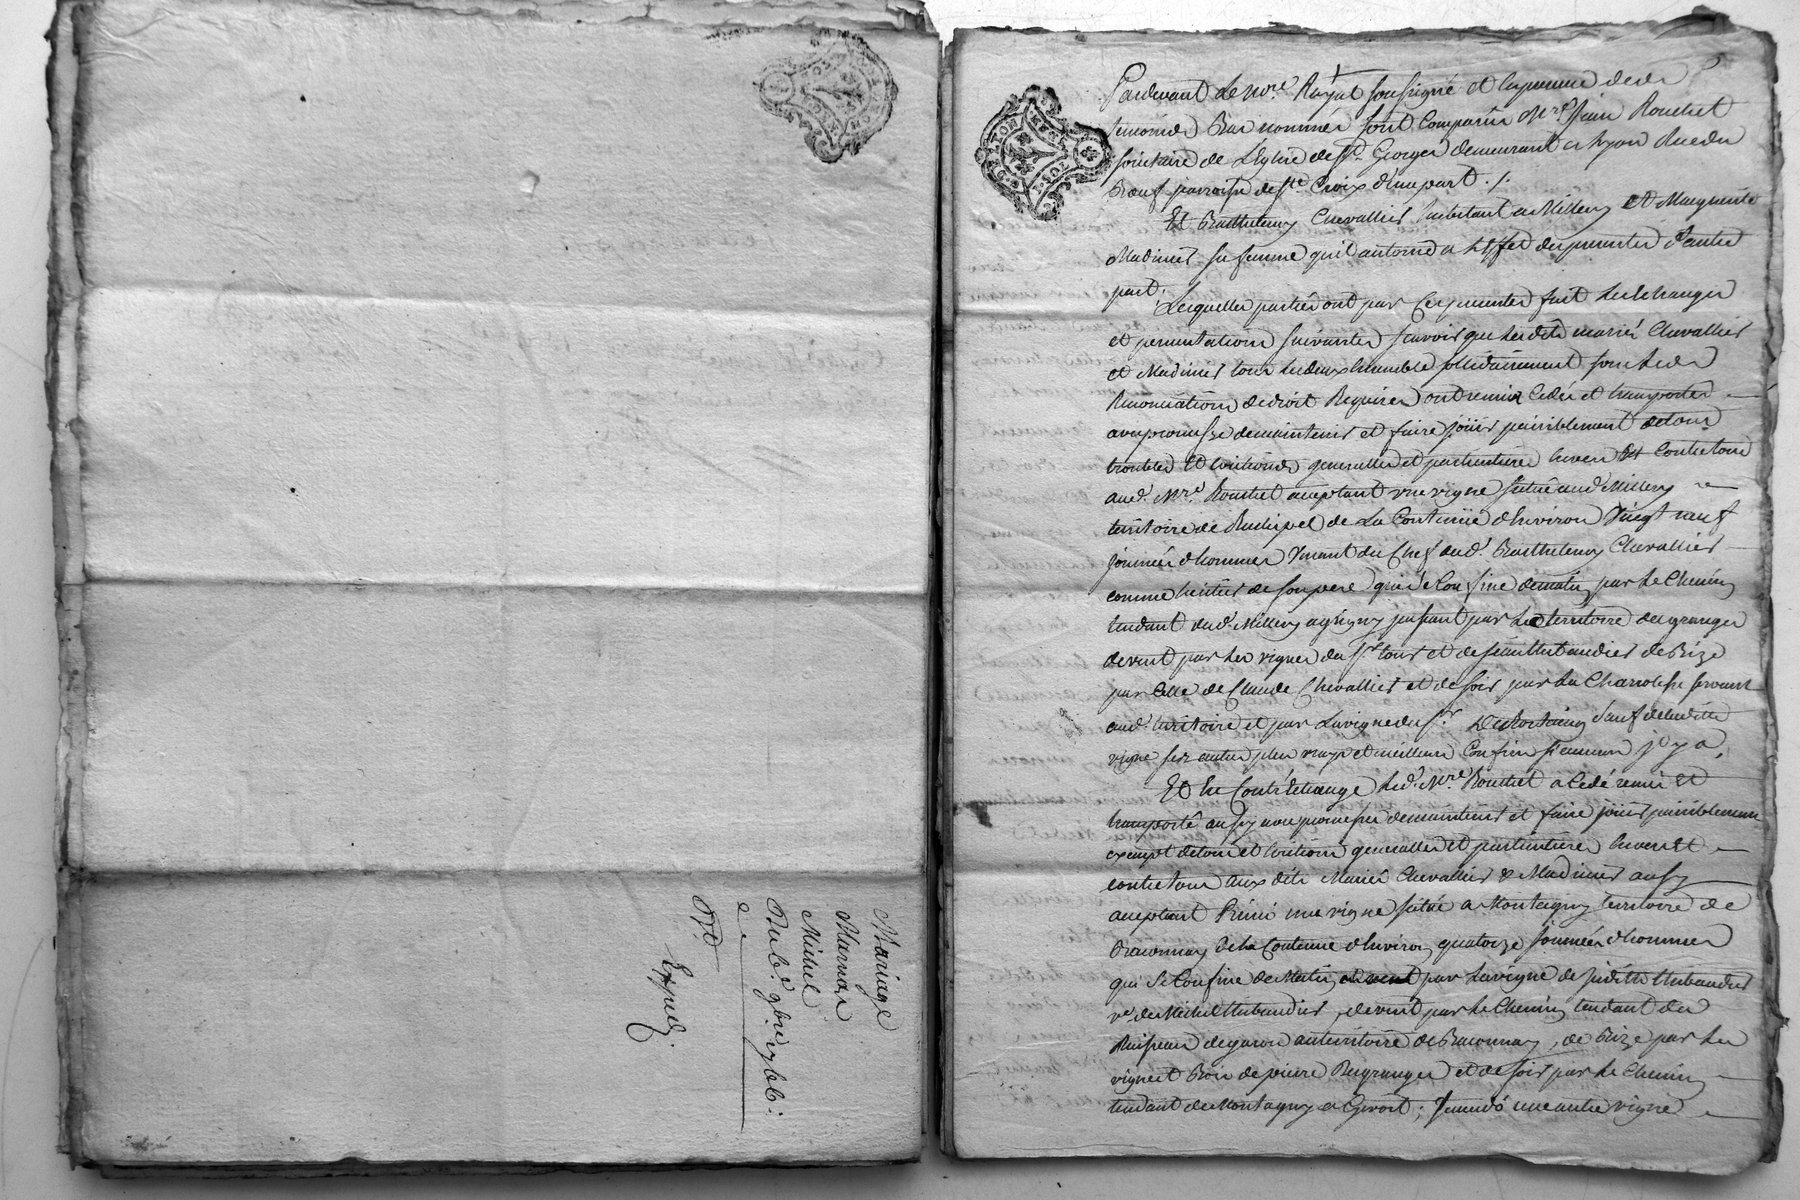 Mariage
Marnas
Michel
9bre
Expedé.
Pardevant le nore Royal soussigné et en presence des
temoins Bas nommés sont comparus Mre Jean Rouchet
de L'Eglise de St. Georges demeurant a Lyon Rue du
Bœuf parroisse de Ste Croix d'une part ./.
Et Barthelemy Chevallier habitant a Millery et Marguerite
Madinier sa femme qu'il autorise a l'effet des presentes d'autre
part;
Lesquelles parties ont par ces presentes fait les Echanges
et permutations suivantes sçavoir que lesdits mariés Chevallier
et Madinier tous les deux Ensemble sollidairement sous les
Renonciations de droit Requises ont remis cedés et transportés
avec promesse de maintenir et faire joüir paisiblement de tous
troubles et Evictions generalles et particulieres Envers et Contre tous
aud. Mre. Rouchet acceptant une vigne située aud. Millery
territoire de de La Contenüe d'Environ Vingt neuf
journées d'hommes Venant du Chef dud. Barthelemy Chevallier
comme heritier de son pere qui se Confine de matin par le Chemin
tendant dud. Millery a grigny passant par le territoire des granges
de vent par les vignes du Sr. et de Jean de Bize
par celle de Claude Chevallier et de soir par la Charriotiere servant
aud. territoire et par la vigne du Sr. sauf de ladite
vigne ses autres plus vrays et meilleurs Confins si aucuns il y a,
Et En Contr'Echange led. Mre. Rouchet a cedé remis et
transporté aussy avec promesse de maintenir et faire joüir paisiblement
exempt de tous et Evictions generalles et particulieres Envers et
contre tous aux dits Mariés Chevallier & Madinier aussy
acceptant Primo une vigne située a Montagny territoire de
Braconnay de la Contenue d'Environ quatorze journées d'hommes
qui se Confine de Matin par la vigne de judith
ve. de Michel de vent par le Chemin tendant du
Ruisseau de garon au territoire de Braconnay, de Bize par les
vigne et Bois de pierre Bugranges et de soir par le Chemin
tendant de Montagny a Givort; Secundo une autre vigne